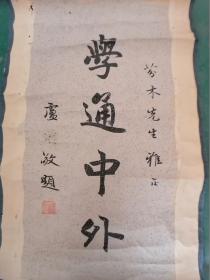 芬木先生雅正
學通中外
盧 敬題